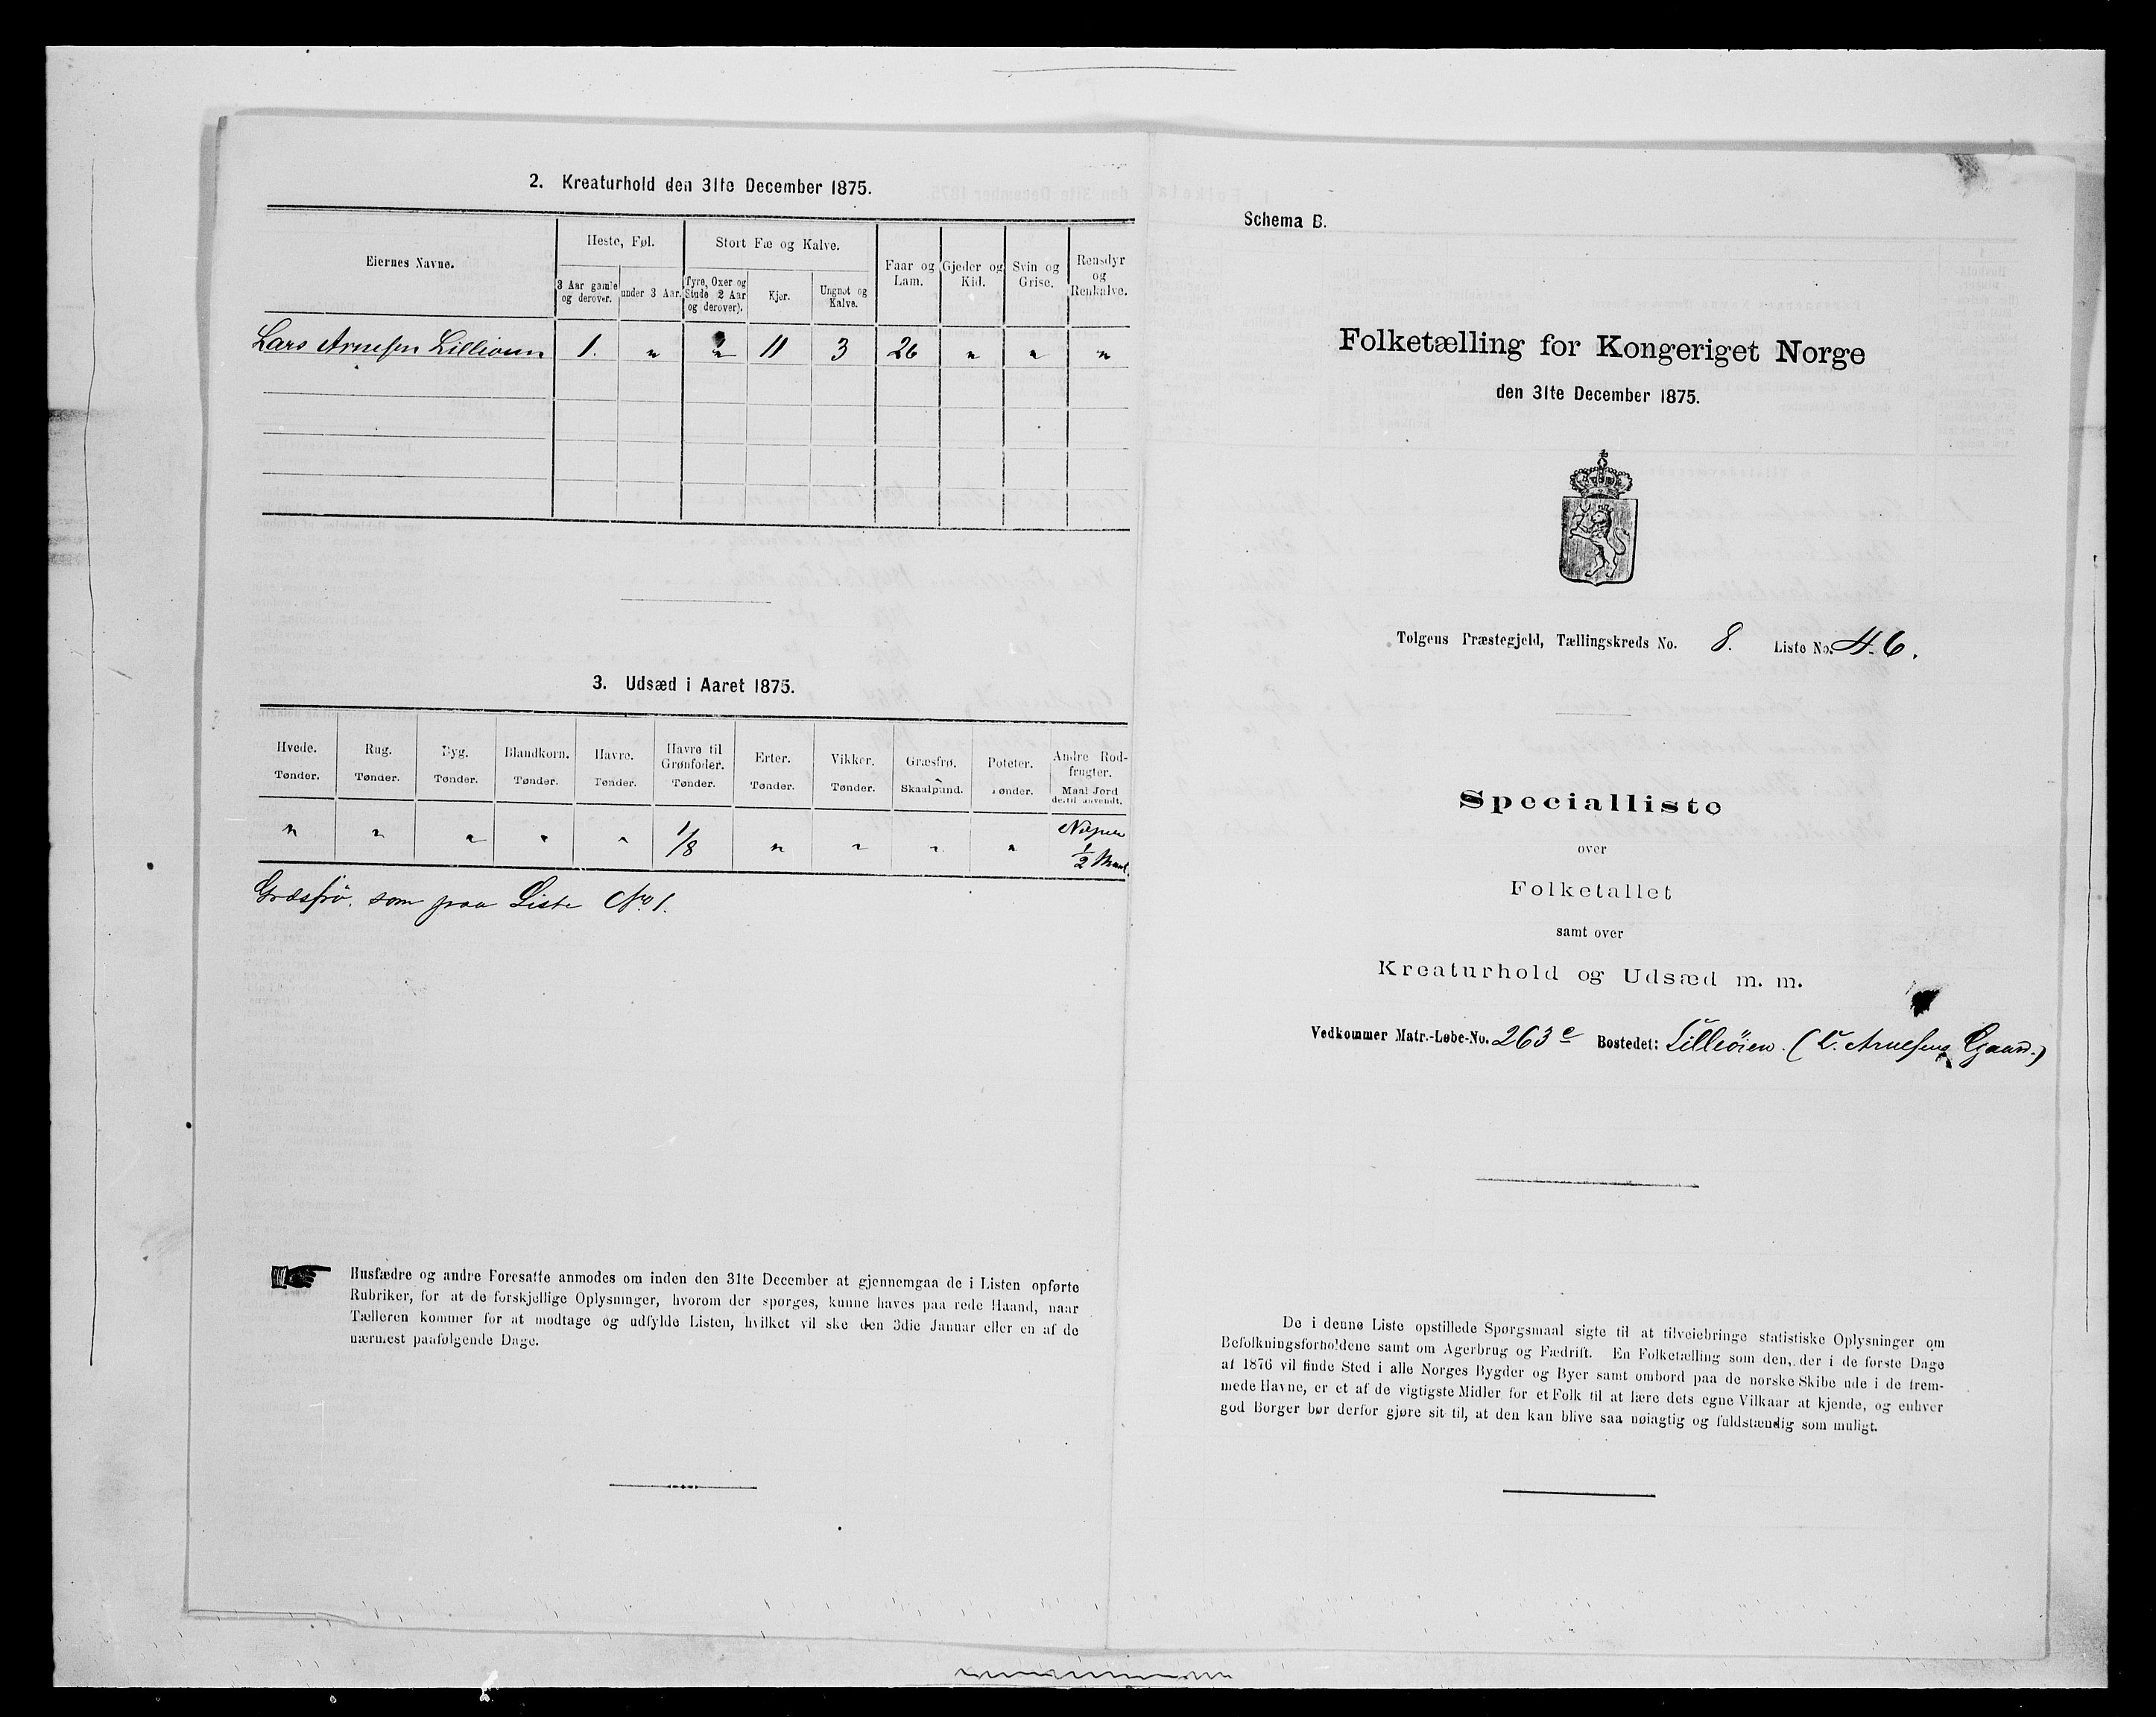 2. Kreaturhold den 31te December 1875.
Eiernes Navne.
Heste, Føl.
Stort Fæ og Kalve.
3 Aar gamle og derover.
under 3 Aar.
Tyre, Oxer og Stude 2 Aar og derover).
Kjør.
Ungnøt og Kalve.
Faar og Lam.
Gjeder og Kid.
Svin og Grise.
Rensdyr og Renkalve.
Lars Arnesen Lillioien 1. " " 11 3 26 " " "
3. Udsæd i Aaret 1875.
Hvede. Rug. Byg. Blandkorn. Havre. Havre til Grønfoder. Erter. Vikker. Græsfrø. Poteter. Andre Rodfrugter.
Tønder. Tønder. Tønder. Tønder. Tønder. Tønder. Tønder. Tønder. Skaalpund. Tønder. Maal Jord dertil anvendt.
" " " " " 1/8 " " " " Næper 1/2 Maal.
Græsfrö. som paa Liste No 1.
Husfædre og andre Foresatte anmodes om inden den 31te December at gjennemgaa de i Listen opførte
Rubriker, for at de forskjellige Oplysninger, hvorom der spørges, kunne haves paa rede Haand, naar
Tælleren kommer for at modtage og udfylde Listen, hvilket vil ske den 3die Januar eller en af de
nærmest paafølgende Dage.
Schema B.
Folketælling for Kongeriget Norge
den 31te December 1875.
Tolgens Præstegjeld, Tællingskreds No. 8. Liste No. 46.
Specialliste
over
Folketallet
samt over
Kreaturhold og Udsæd m. m.
Vedkommer Matr.-Løbe-No. 263e Bostedet: Lilleöien. (L. Arnesens Gaard.)
De i denne Liste opstillede Spørgsmaal sigte til at tilveiebringe statistiske Oplysninger om
Befolkningsforholdene samt om Agerbrug og Fædrift. En Folketælling som den, der i de første Dage
af 1876 vil finde Sted i alle Norges Bygder og Byer samt ombord paa de norske Skibe ude i de frem-
mede Havne, er et af de vigtigste Midler for et Folk til at lære dets egne Vilkaar at kjende, og enhver
god Borger bør derfor gjøre sit til, at den kan blive saa nøiagtig og fuldstændig som muligt.